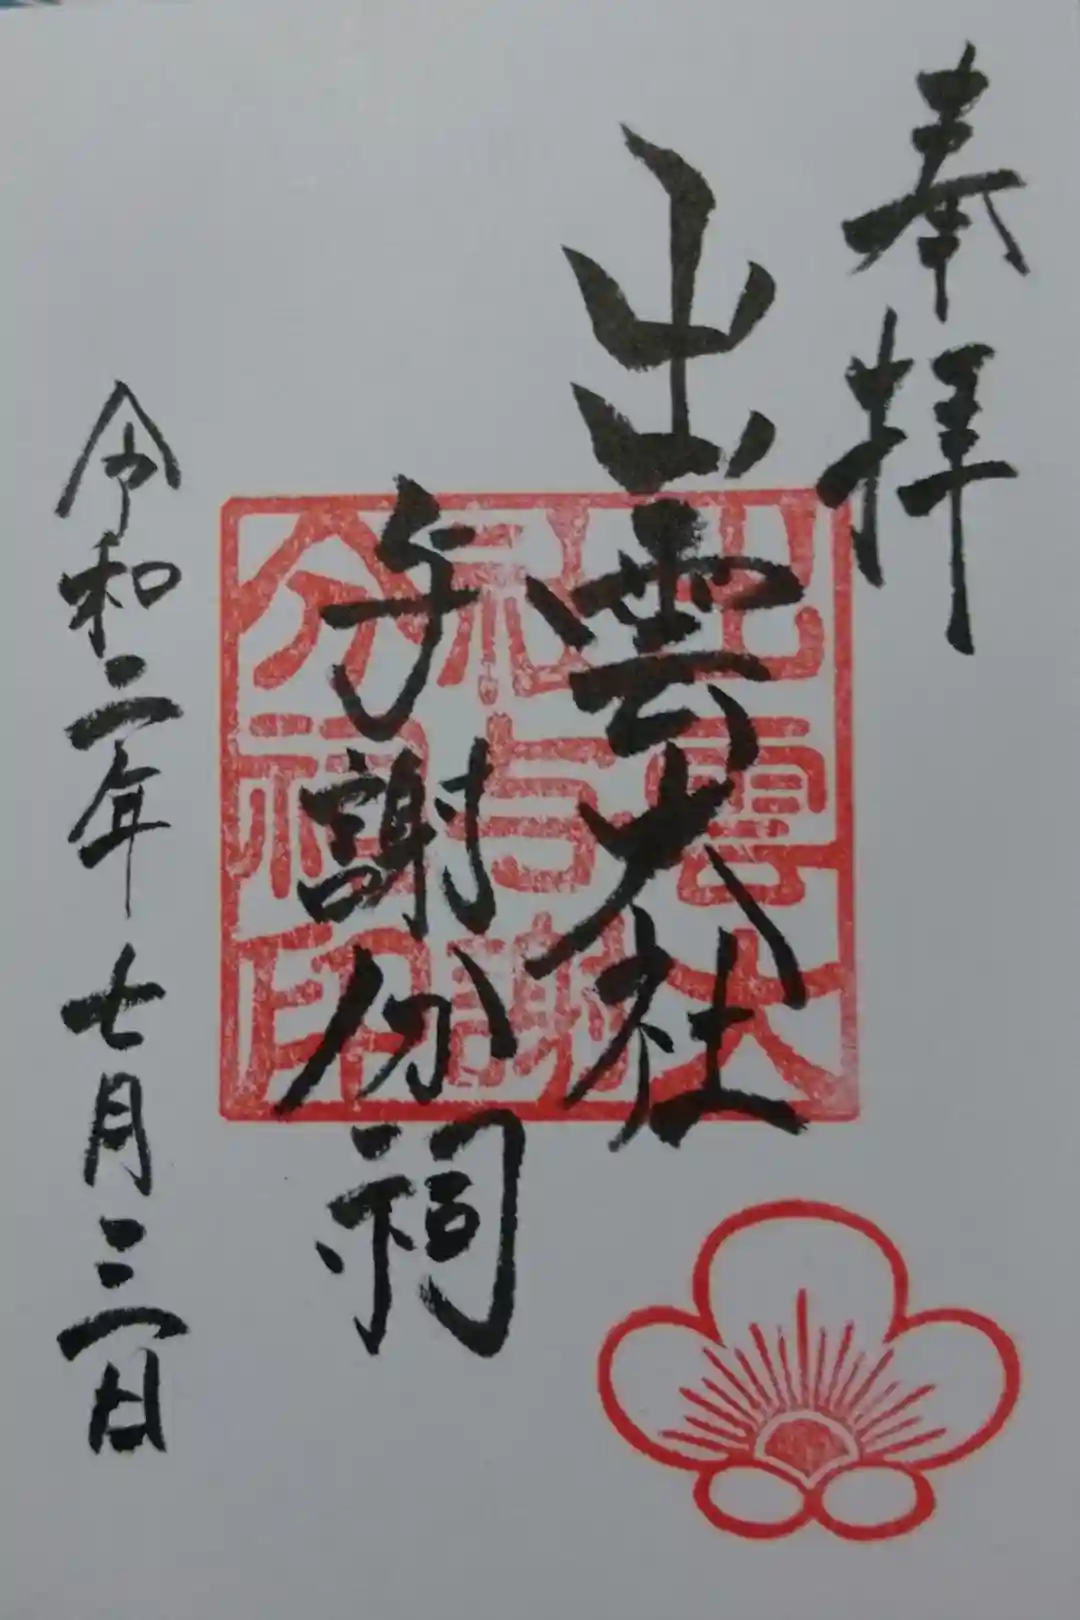 奉拝
出雲大社
与謝分祠
令和二年七月三日
出雲大
社与謝
分祠印